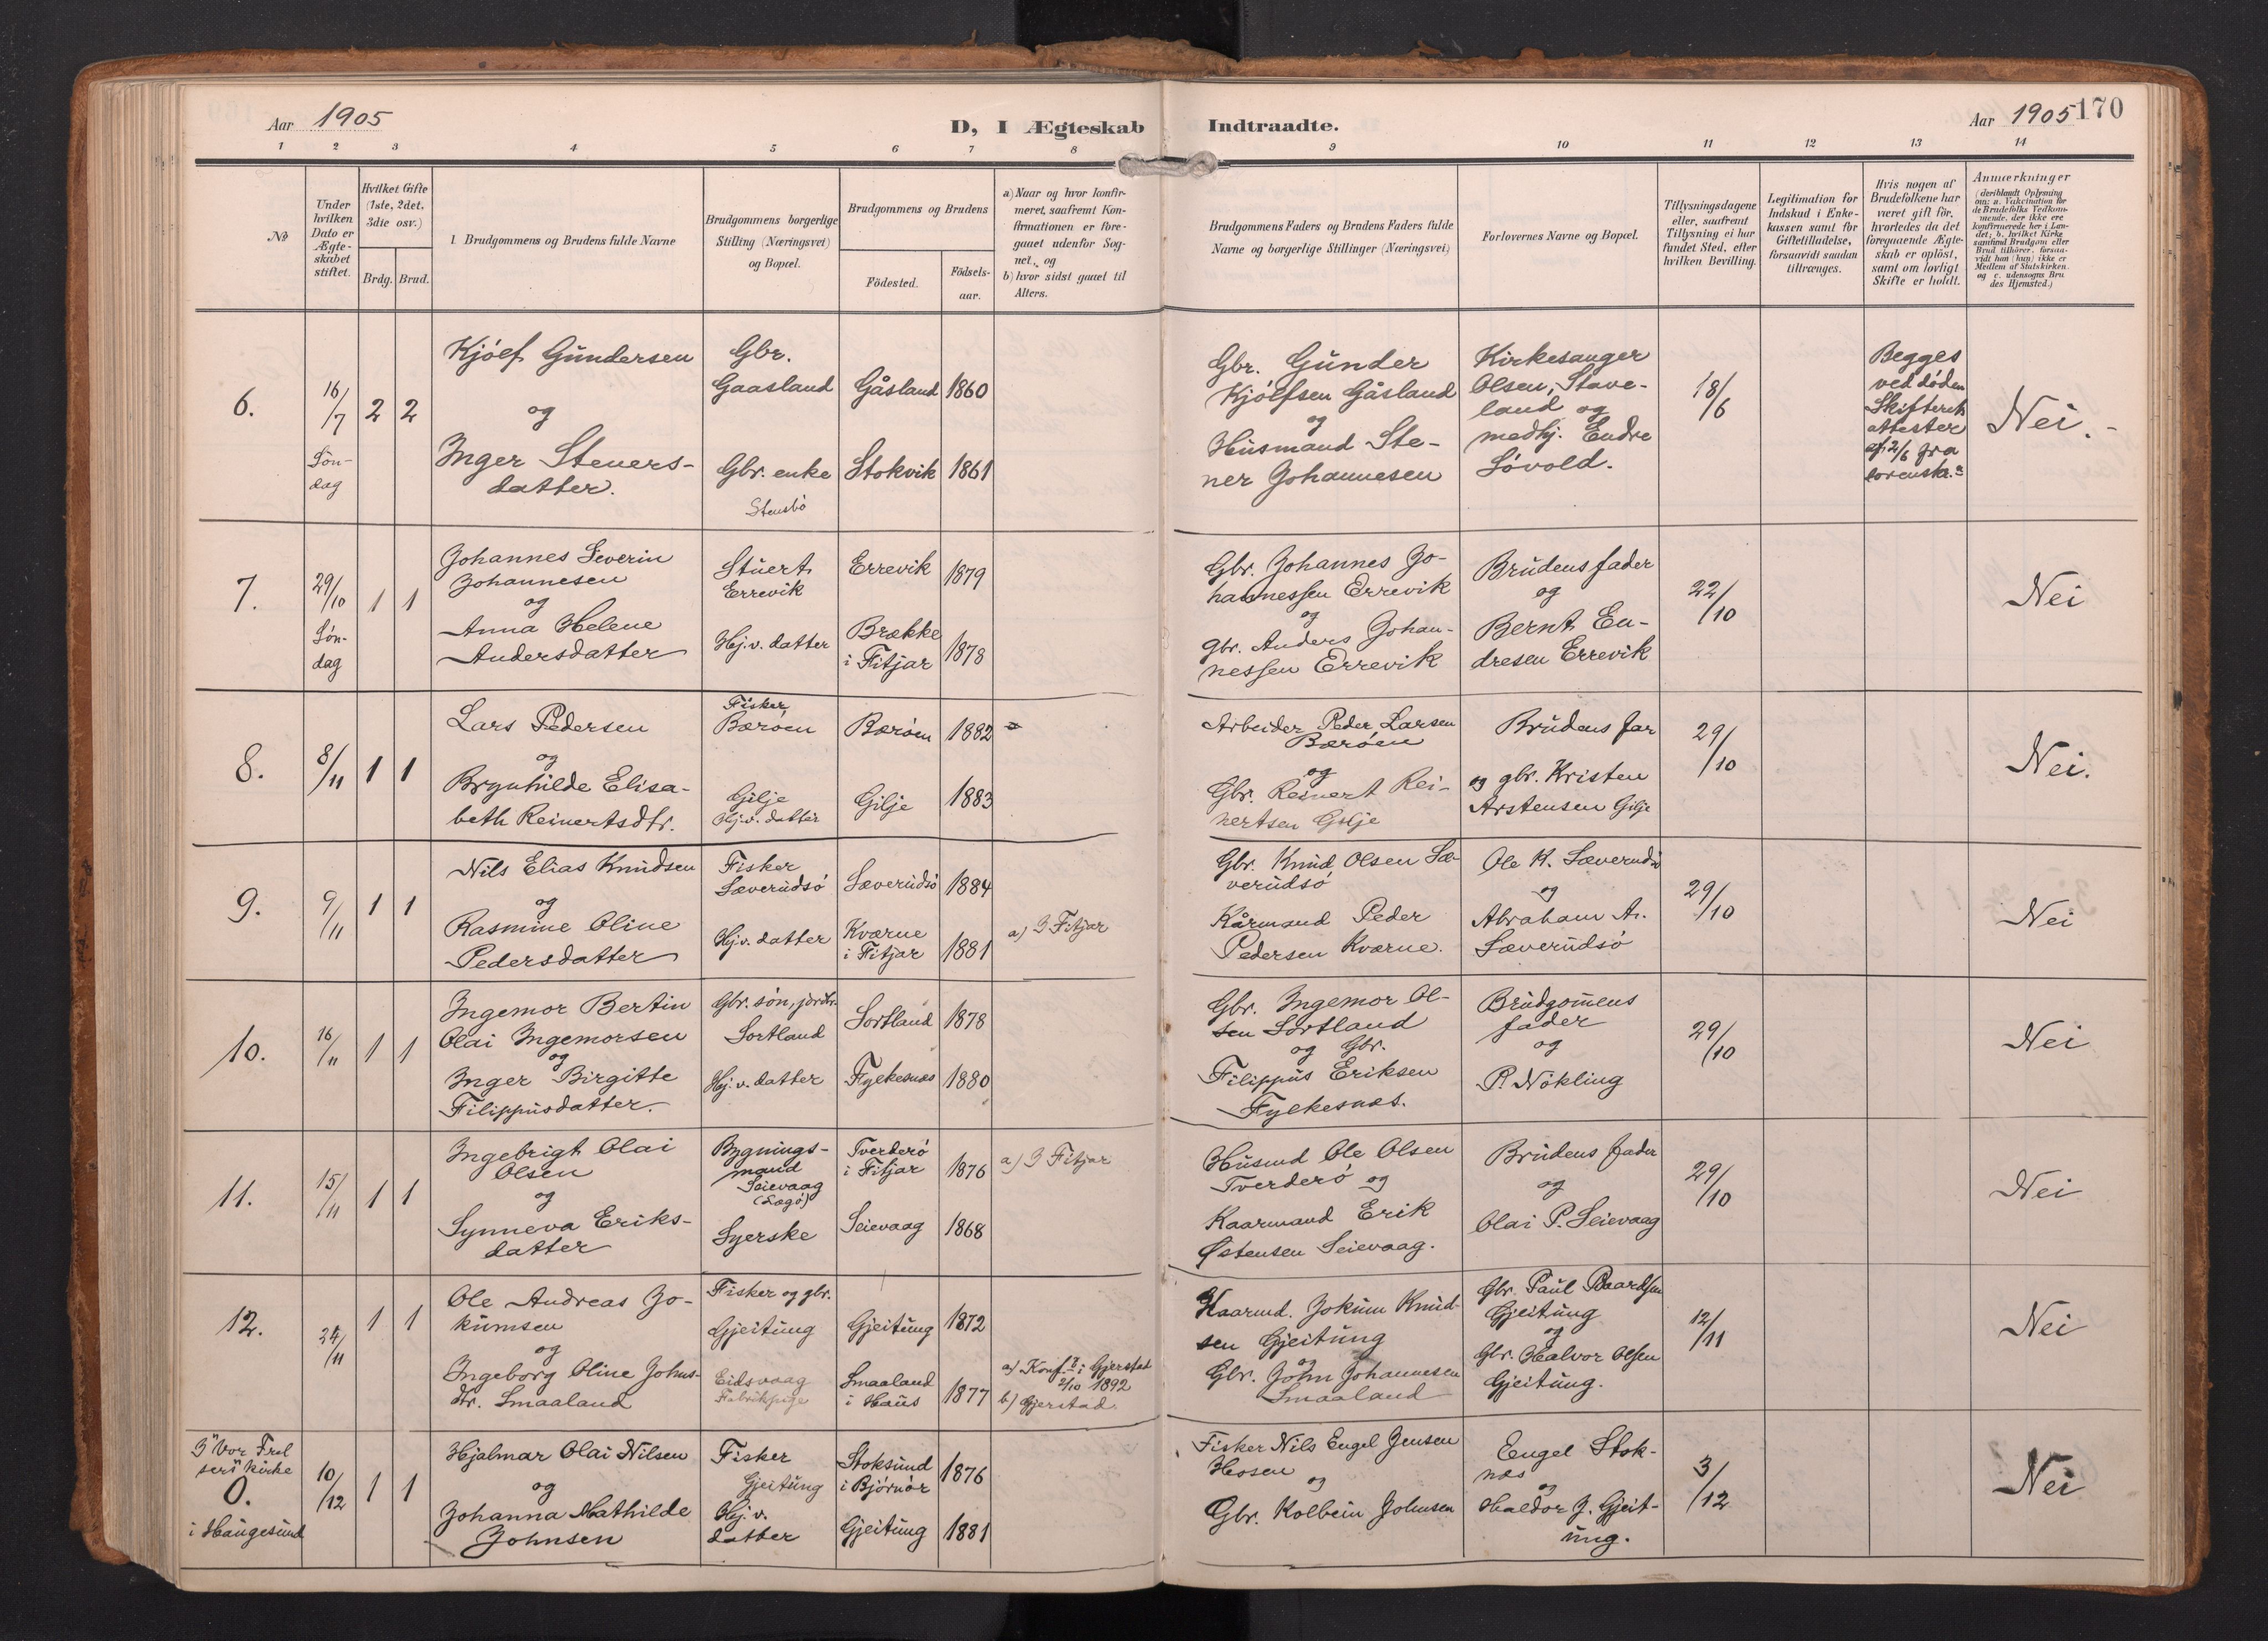 Aar 1905
D, I Ægteskab Indtraadte.
Aar 1905 170
1 2 3 4 5 6 7 8 9 10 11 12 13 14
№
Under hvilken Dato er Ægte-skabet stiftet.
Hvilket Gifte (1ste, 2det, 3die osv.)
Brdg. Brud.
Brudgommens og Brudens fulde Navne
Brudgommens borgerlige Stilling (Næringsvei) og Bopæl.
Brudgommens og Brudens
Födested.
Födsels-aar.
a) Naar og hvor konfir-meret, saafremt Kon-firmationen er fore-gaaet udenfor Sog-net, og
b) hvor sidst gaaet til Alters.
Brudgommens Faders og Brudens Faders fulde Navne og borgerlige Stillinger (Næringsvei)
Forlovernes Navne og Bopæl.
Tillysningsdagene eller, saafremt Tillysning ei har fundet Sted, efter hvilken Bevilling.
Legitimation for Indskud i Enke-kassen samt for Giftetilladelse, forsaavidt saadan tiltrænges.
Hvis nogen af Brudefolkene har været gift för, hvorledes da det foregaaende Ægte-skab er oplöst, samt om lovligt Skifte er holdt.
Anmærkninger
(deriblandt Oplysning om: a. Vakcination for de Brudefolks Vedkom-mende, der ikke ere konfirmerede her i Lan-det; b. hvilket Kirke-samfund Brudgom eller Brud tilhörer, forsaa-vidt han (hun) ikke er Medlem af Statskirken. og c. udensogns Bru-des Hjemsted.)
6.
16/7
Søn-
dag
2 2
Kjölf Gundersen
og
Inger Steners-
datter.
Gbr.
Gaasland
Gbr. enke
Stensbö
Gåsland 1860
Stokvik 1861
Gbr. Gunder
Kjölfsen Gåsland
og
Husmand Ste-
ner Johannesen
Kirkesanger
Olsen, Stave-
land og
medhj. Endre
Lövold.
18/6
Begges
ved döden
Skifteret
attester
af 2/6 fra
Nei.
7.
29/10
Søn-
dag
1 1
Johannes Severin
Johannesen
og
Anna Helene
Andersdatter
Stuert
Errevik
Hj. v. datter
Errevik 1879
Brække
i Fitjar 1878
Gbr. Johannes Jo-
hannessen Errevik
og
Gbr. Anders Johan-
nessen Errevik
Brudens fader
og
Bernt En-
dresen Errevik
22/10
Nei
8.
8/11
1 1
Lars Pedersen
og
Brynhilde Elisa-
beth Reinertsdtr.
Fisker
Bæröen
Gilje
Hj. v. datter
Bæröen 1882
Gilje 1883
Arbeider Peder Larsen
Bæröen
og
Gbr. Reinert Rei-
nertsen Gilje
Brudens far
og gbr. Kristen
Arstensen Gilje
29/10
Nei.
9.
9/11
1 1
Nils Elias Knudsen
og
Rasmine Oline
Pedersdatter
Fisker
Sæverudsö
Hj. v. datter
Sæverudsö 1884
Kværne
i Fitjar 1881
a) I Fitjar
Gbr. Knud Olsen Sæ-
verudsö
Kårmand Peder
Pedersen Kværne.
Ole K. Sæverudsö
og
Abraham A.
Sæverudsö
29/10
Nei
10.
16/11
1 1
Ingemor Bertin
Olai Ingemorsen
og
Inger Birgitte
Filippusdatter.
Gbr. sön, jordbr.
Sortland
Hj. v. datter
Sortland 1878
Fylkesnæs 1880
Gbr. Ingemor Ol-
sen Sortland
og Gbr.
Filippus Eriksen
Fylkesnæs.
Brudgom̄ens
fader
og
P. Nökling
29/10
Nei
11.
15/11
1 1
Ingebrigt Olai
Olsen
og
Synneva Eriks-
datter
Bygnings-
mand
Seievaag
(Sagö)
Syerske
Tverderö
i Fitjar 1876
Seievaag 1868
a) I Fitjar
Husmd Ole Olsen
Tverderö og
Kaarmand Erik
Østensen Seievaag.
Brudens fader
og
Olai P. Seievaag
29/10
Nei
12.
24/11
1 1
Ole Andreas Jo-
kumsen
og
Ingeborg Oline Johns-
dtr. Smaaland
Fisker og gbr.
Gjeitung
Eidsvaag
Fabrikpige
Gjeitung 1872
Smaaland
i Haus 1877
a) Konf. i Gjerstad
2/10 1892
b) Gjerstad.
Kaarmd. Jokum Knud-
sen Gjeitung
og
Gbr. John Johannesen
Smaaland
Gbr. Paul Baardsen
Gjeitung
og
Gbr. Halvor Olsen
Gjeitung.
12/11
Nei
I "Vor Frel
sers" kirke
0.
i Haugesund
10/12
1 1
Hjalmar Olai Nilsen
og
Johanna Mathilde
Johnsen
Fisker
Gjeitung
Hj. v.
datter
Stoksund
i Björnör 1876
Gjeitung 1881
Fisker Nils Engel Jensen
Hosen
og
Gbr. Kolbein Johnsen
Engel Stok-
næs
og
Haldor J. Gjeit-
ung.
3/12
Nei